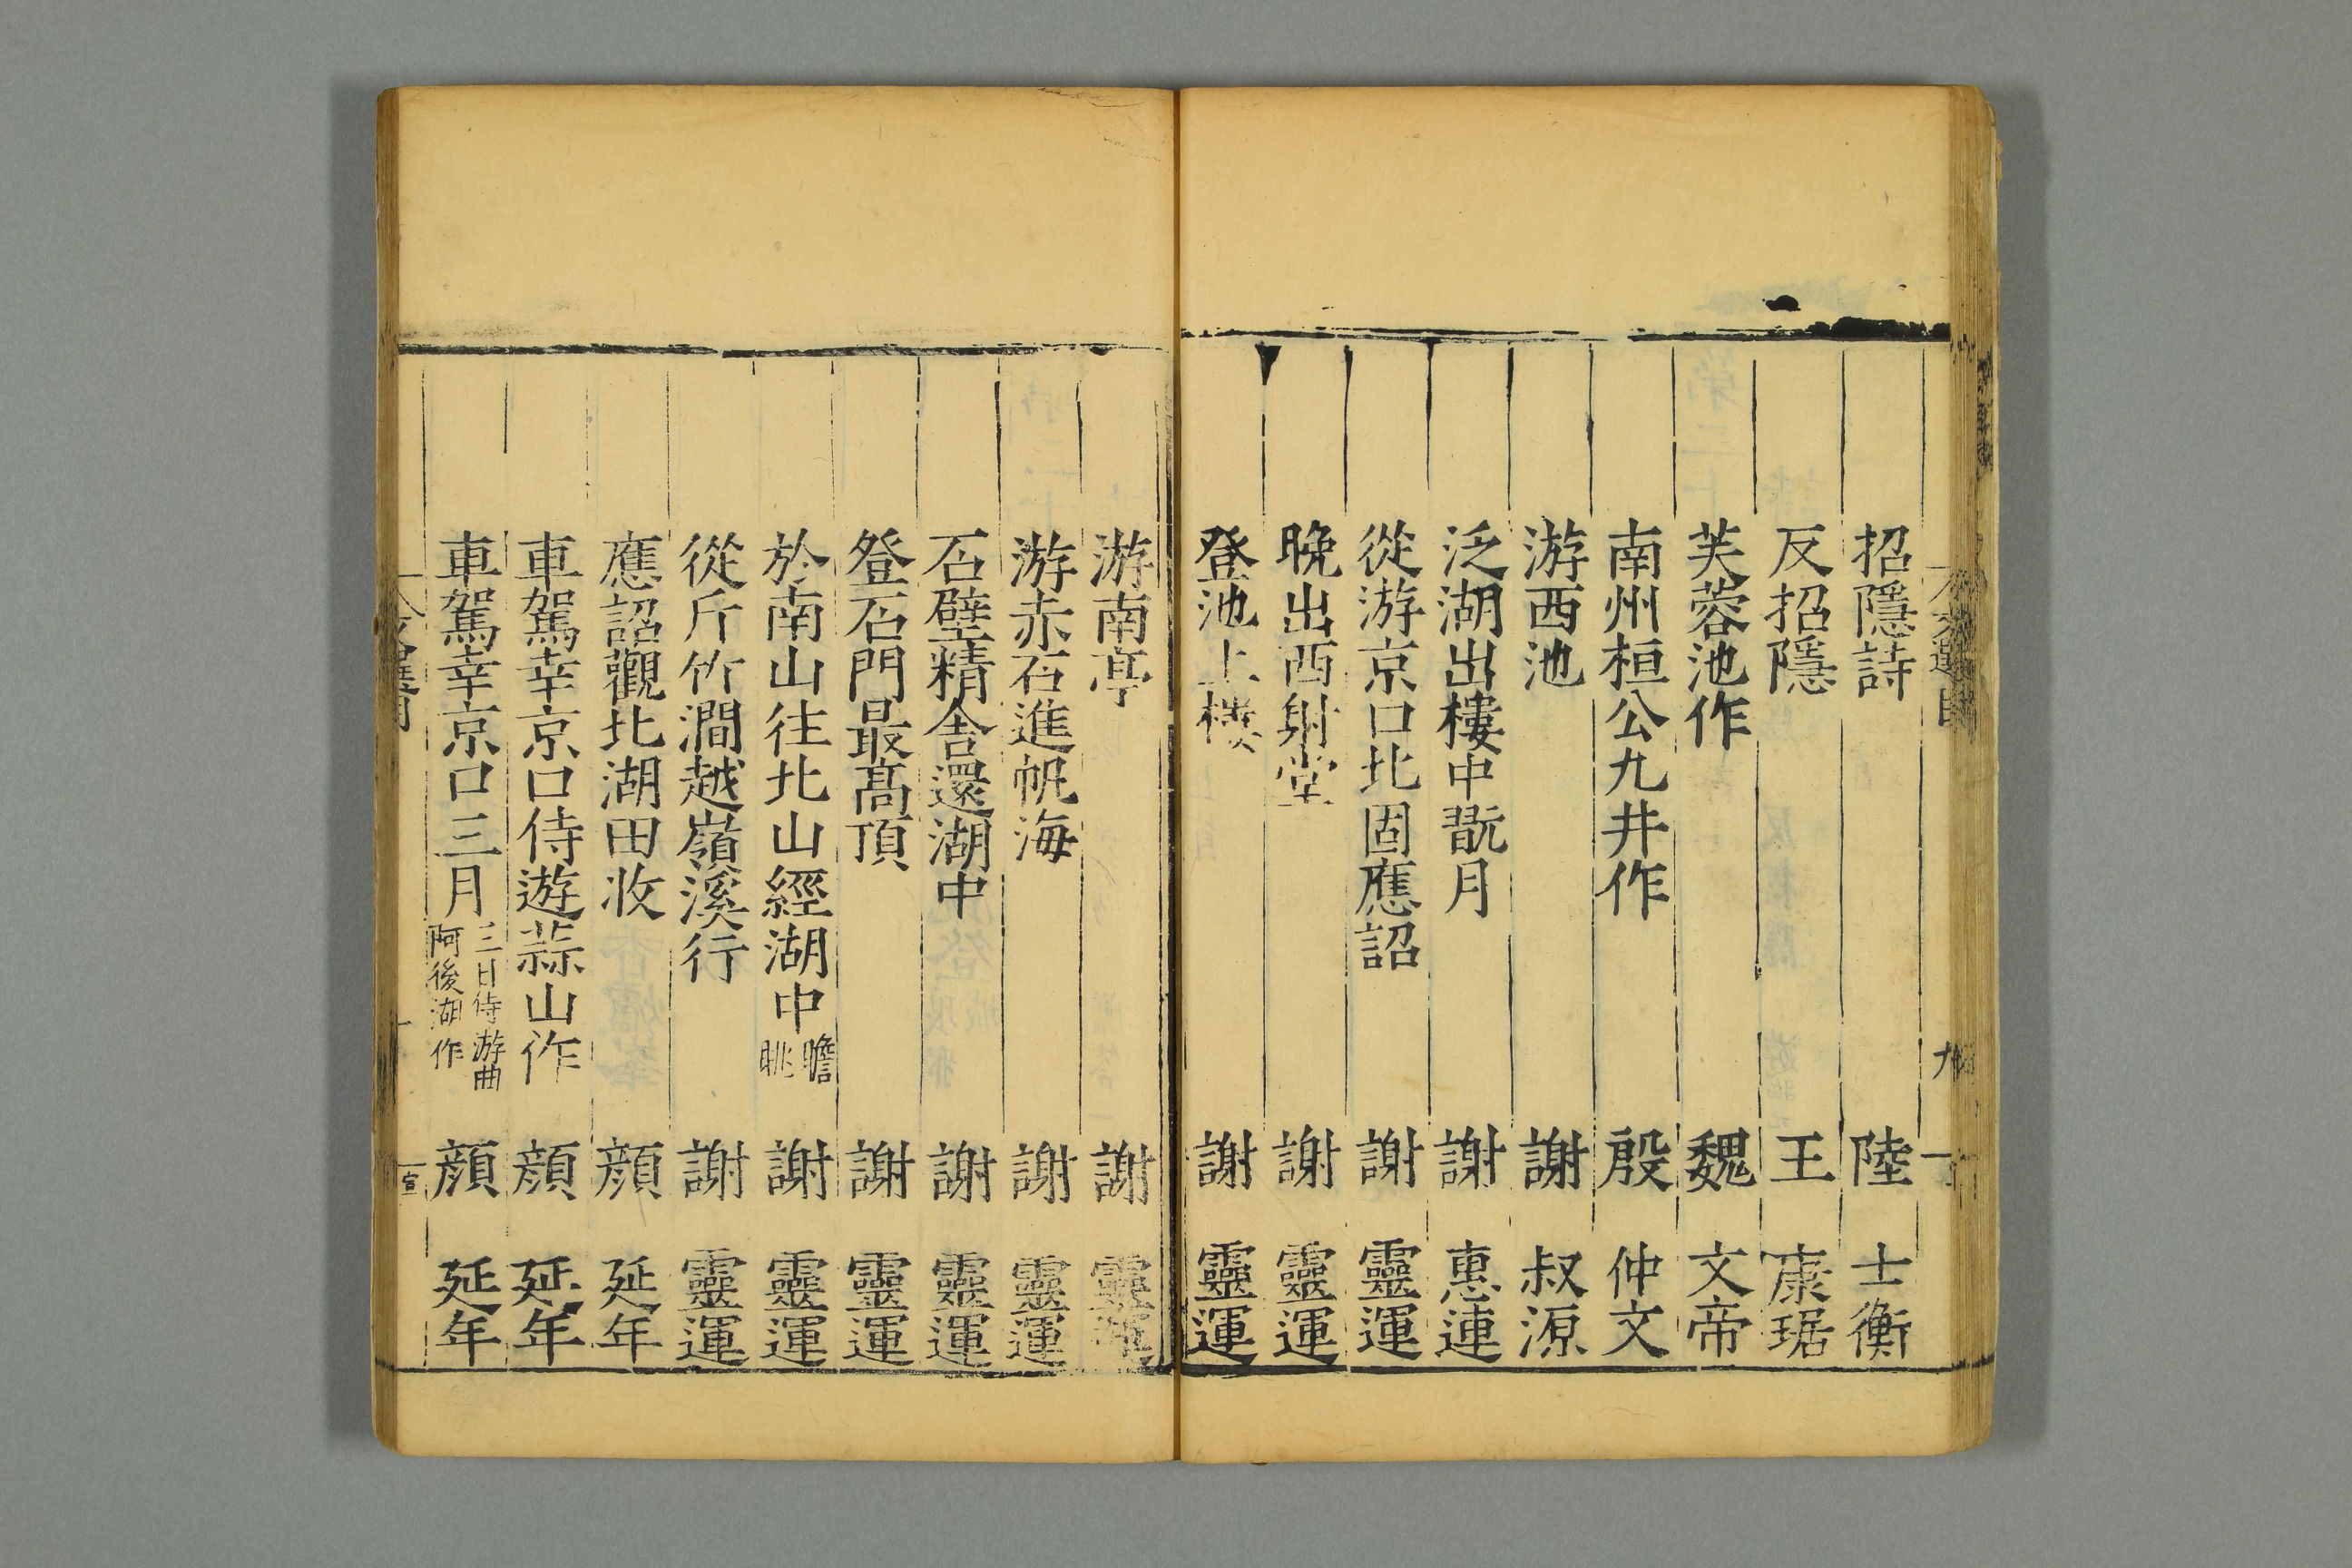 招隱詩 陸 士衡
反招隱 王 康琚
芙蓉池作 魏 文帝
南州桓公九井作 殷 仲文
游西池 謝 叔源
泛湖出樓中翫月 謝 惠連
從游京口北固應詔 謝 靈運
晚出西射堂 謝 靈運
登池上樓 謝 靈運
游南亭 謝 靈運
游赤石進帆海 謝 靈運
石壁精舍還湖中 謝 靈運
登石門最髙頂 謝 靈運
於南山往北山經湖中瞻眺 謝 靈運
從斤竹澗越嶺溪行 謝 靈運
應詔觀北湖田收 顔 延年
車駕幸京口侍遊蒜山作 顔 延年
車駕幸京口三月三日侍游曲阿後湖作 顔 延年